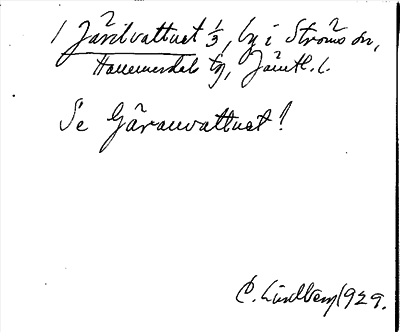 1 Järilvattnet 1/3, by i Ströms sn,
Hammerdals tg, Jämtl. l.
Se Gäravattnet!
C. Lindberg 1929.